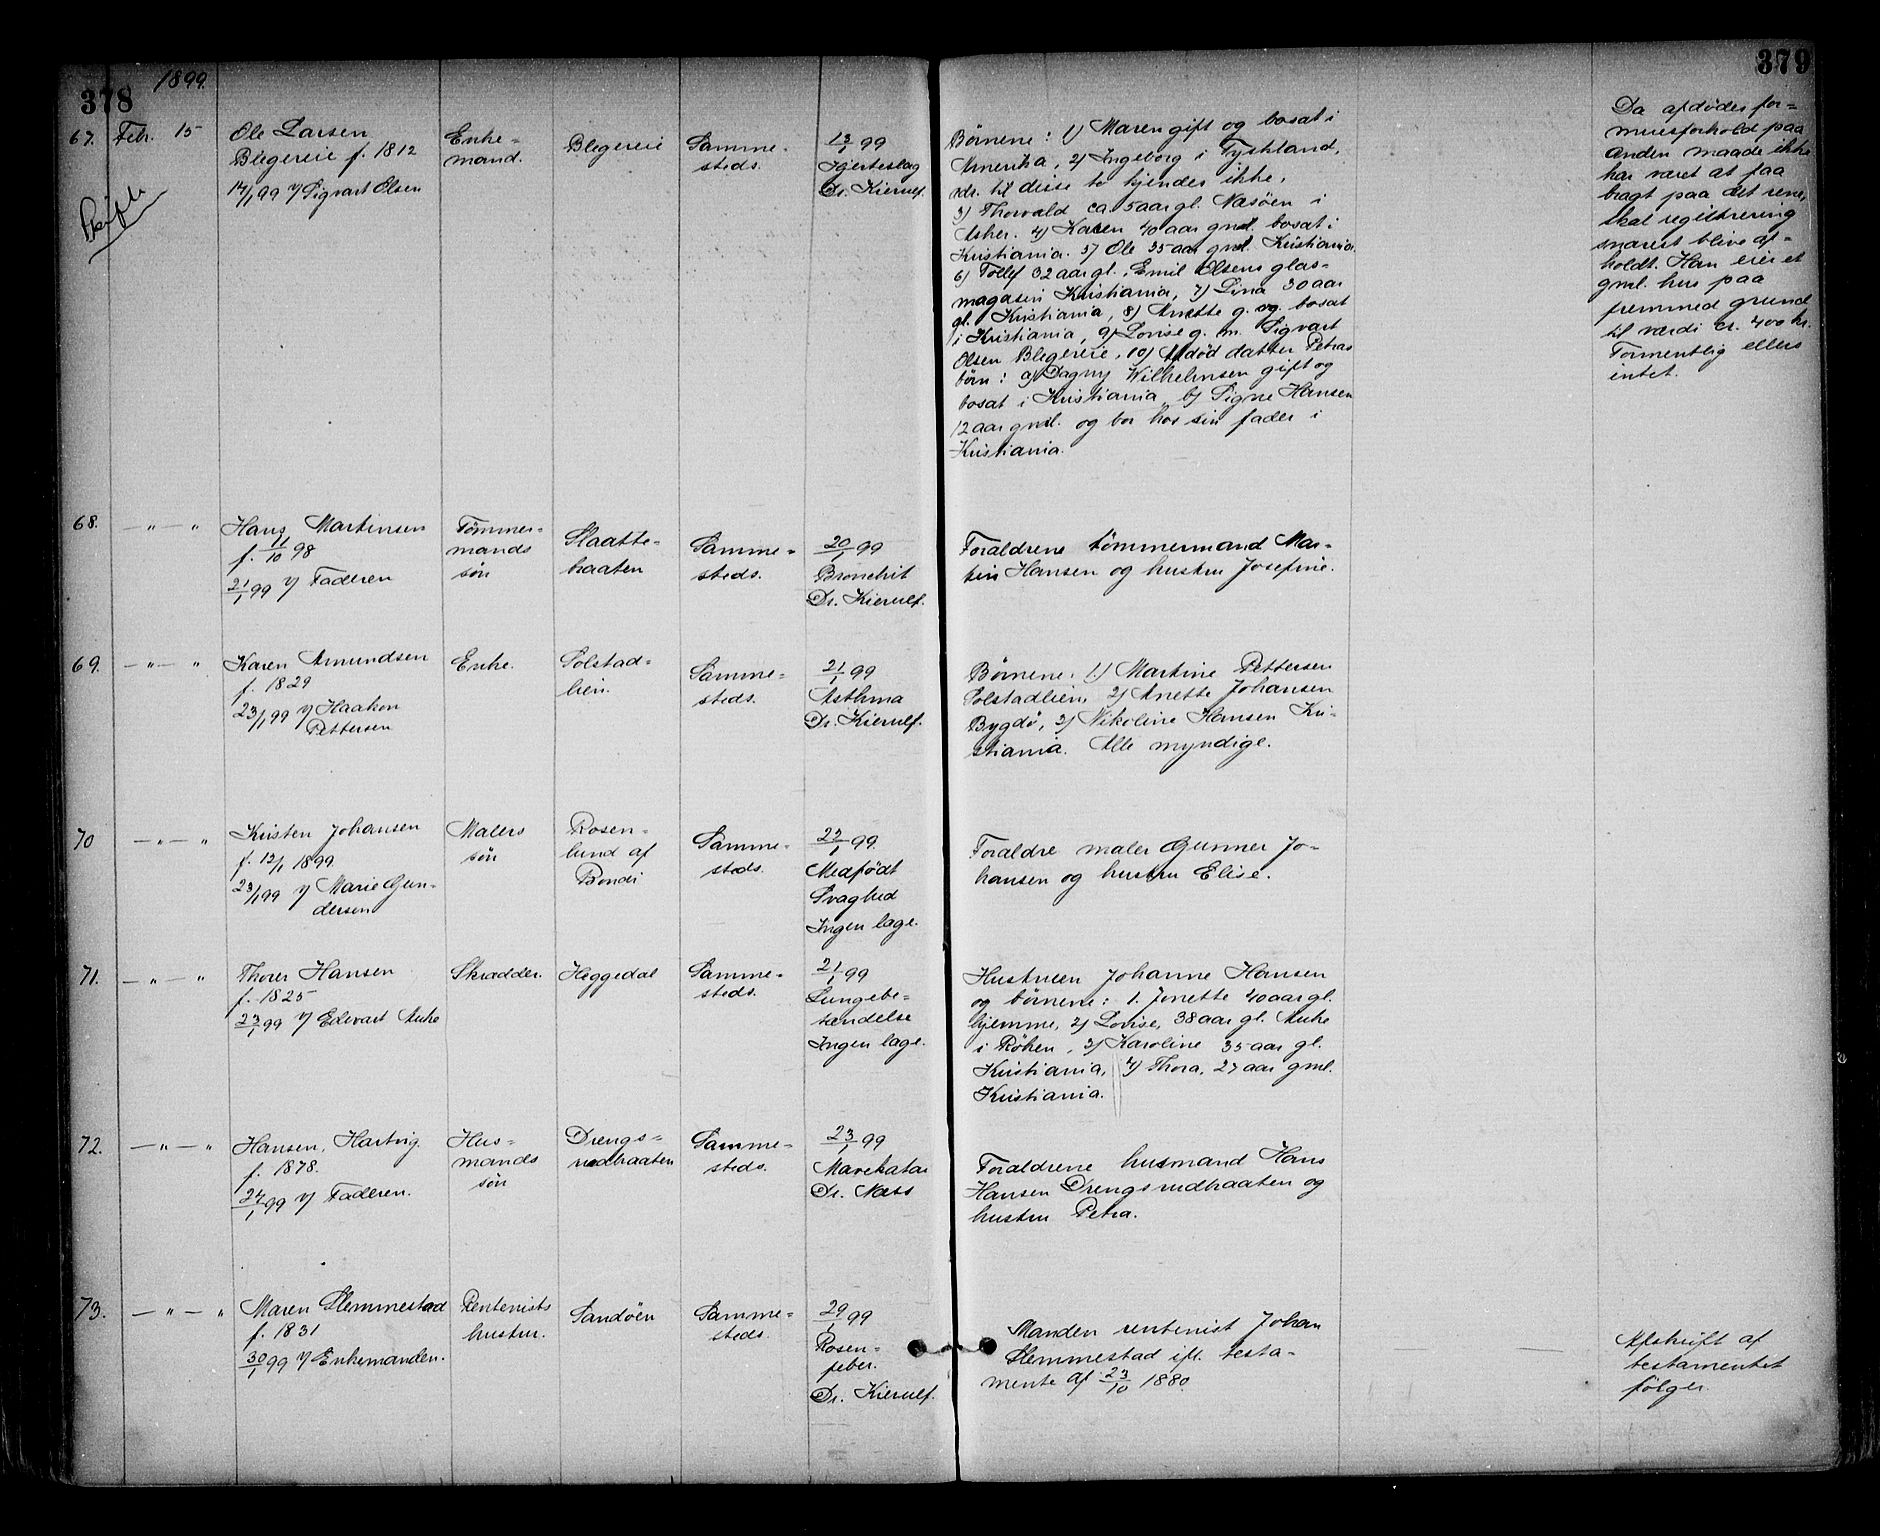 378
1899.
379
67. Febr. 15
Ole Larsen
Blegereie f. 1812
14/1 99 v/ Sigvart Olsen
Skifte
Enke=
mand.
Blegereie
Samme-
steds.
13/1 99
Hjerteslag
Dr. Kierulf.
Børnene: 1) Maren gift og bosat i
Amerika, 2) Ingeborg i Tyskland,
adr. til disse to kjendes ikke,
3) Thorvald ca. 5 aar gl. Næsøen i
Asker. 4) Karen 40 aar gml. bosat i
Kristiania. 5) Ole 35 aar gml. Kristiania.
6) Tollef 32 aar gl., Emil Olsens glas-
magasin Kristiania, 7) Lina 30 aar
gl. Kristiania, 8) Anette g. og bosat
i Kristiania, 9) Lovise g. m. Sigvart
Olsen Blegereie, 10) Afdød datter Petras
børn: a) Dagny Wilhelmsen gift og
bosat i Kristiania, b) Signe Hansen
12 aar gml. og bor hos sin fader i
Kristiania.
Da afdødes for=
muesforhold paa
anden maade ikke
har været at faa
bragt paa det rene,
skal registrering
snarest blive af=
holdt. Han eier et
gml. hus paa
fremmed grund
til værdi ca. 400 kr.
Formentlig ellers
intet.
68. — " — "
Hans Martinsen
f. 11/10 98
21/1 99 v/ Faderen
Tømmer=
mands
søn
Slaatte=
braaten
Samme=
steds.
20/1 99
Bronchit
Dr. Kierulf.
Forældrene tømmermand Mar=
tin Hansen og hustru Josefine.
69. — " — "
Karen Amundsen
f. 1829
23/1 99 v/ Haakon
Pettersen
Enke.
Solstad=
lien.
Samme=
steds.
21/1 99
Asthma
Dr. Kierulf.
Børnene: 1) Martine Pettersen
Solstadlien, 2) Anette Johansen
Bygdø, 3) Nikoline Hansen Kri=
stiania. Alle myndige.
70 — " — "
Kristen Johansen
f. 12/1 1899.
23/1 99 v/ Marie Gun=
dersen
Malers
søn
Rosen=
lund af
Bondi
Samme=
steds.
22/1 99.
Medfødt
Svaghed
Ingen læge.
Forældre maler Gunner Jo=
hansen og hustru Elise.
71. — " — "
Thorer Hansen
f. 1825
23/1 99 v/ Edevart Auke
Skrædder.
Heggedal
Samme=
steds.
21/1 99
Lungebe=
tændelse
Ingen læge.
Hustruen Johanne Hansen
og børnene: 1. Jonette 40 aar gl.
hjemme, 2) Lovise, 38 aar gl. Auke
i Røken, 3) Karoline 35 aar gl.
Kristiania, 4) Thora, 27 aar gml.
Kristiania.
72. — " — "
Hansen, Hartvig.
f. 1878.
24/1 99 v/ Faderen.
Hus=
mands
søn
Drengs=
rudbraaten
Samme=
steds.
23/1 99
Mavekatar
Dr. Næss
Forældrene husmand Hans
Hansen Drengsrudbraaten og
hustru Petra.
73. — " — "
Maren Slemmestad
f. 1831
30/1 99 v/ Enkemanden.
Rentenists
hustru.
Sandøen
Samme=
steds.
29/1 99
Rosen=
feber.
Dr. Kierulf.
Manden rentenist Johan
Slemmestad ifl. testa=
mente af 23/10 1880.
Afskrift af
testamentet
følger.